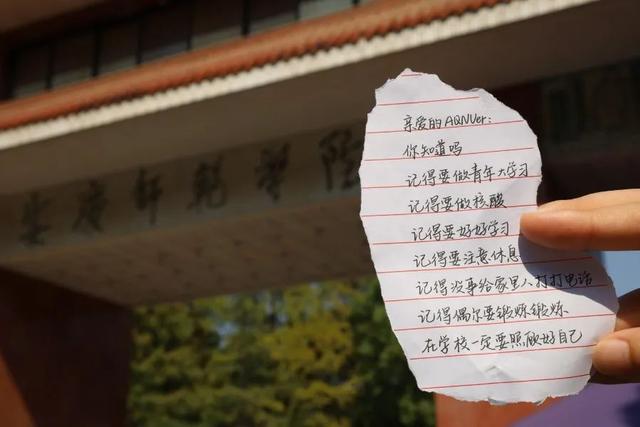 安庆师范学院
亲爱的AQNUer:
你知道吗
记得要做青年大学习
记得要做核酸
记得要好好学习
记得要注意休息
记得没事给家里人打打电话
记得偶尔要锻炼锻炼
在学校一定要照顾好自己